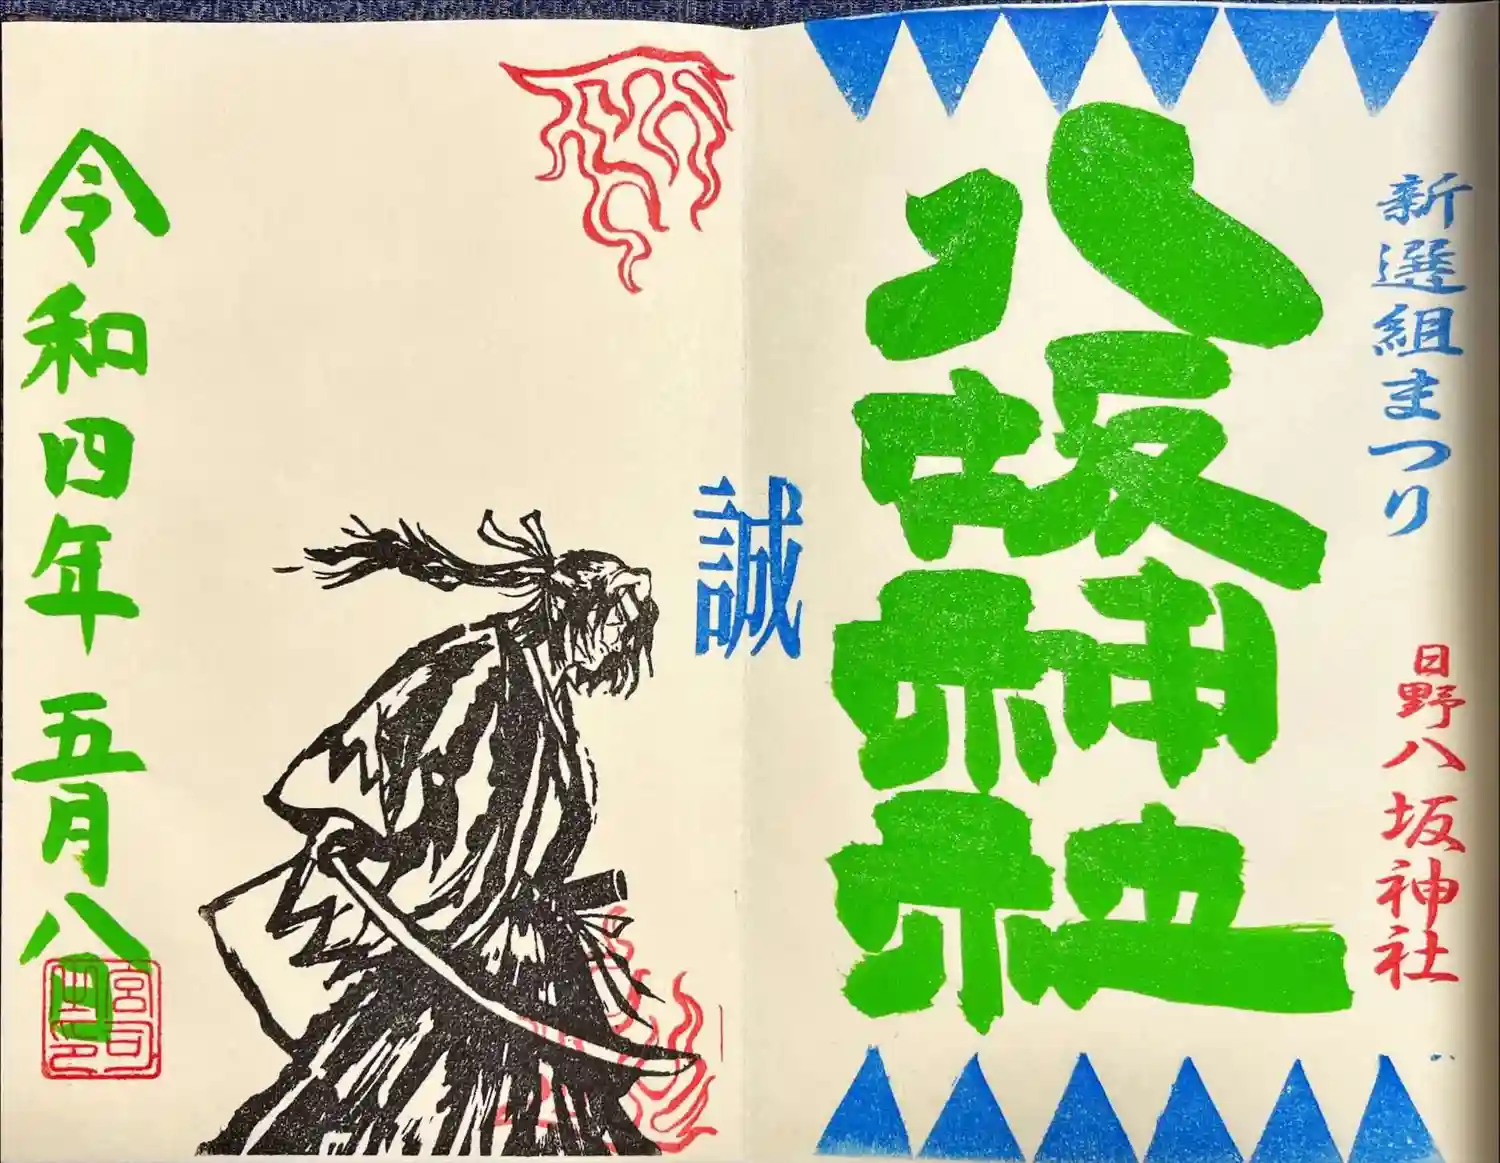 新選組まつり
日野八坂神社
八坂神社
誠
令和四年五月八日
宮司之印